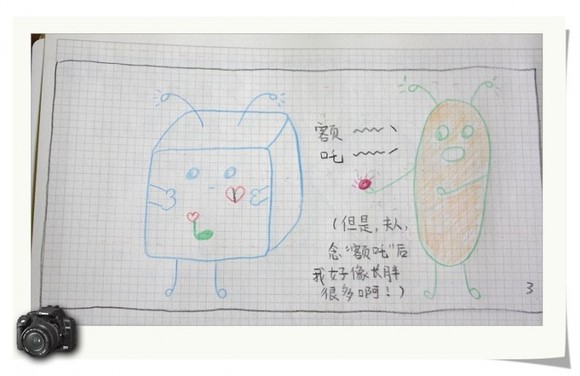 额
吒
(但是,夫人,
念“额吒”后
我好像长胖
很多啊!)
3